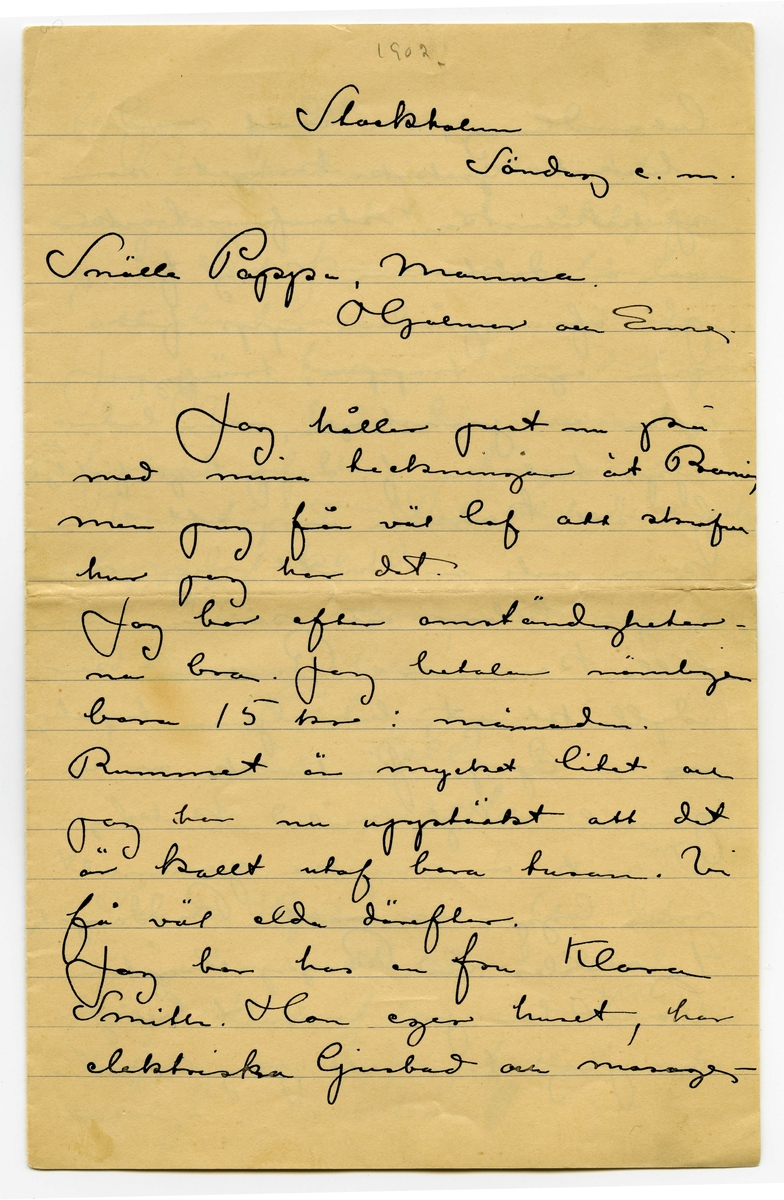 1902.
Stockholm
Söndag e. m.
Snälla Pappa, Mamma.
Hjalmar och
Jag håller just nu på
med mina teckningar åt
men jag får väl lof att skrifva
hur jag har det.
Jag bor efter omständigheter-
na bra. Jag betalar nämligen
bara 15 kr i månaden.
Rummet är mycket litet och
jag har nu upptäckt att det
är kallt utaf bara tusan. Vi
få väl elda därefter.
Jag bor hos en fru Klara
Smitth. Hon eger huset, har
elektriska ljusbad och massage-